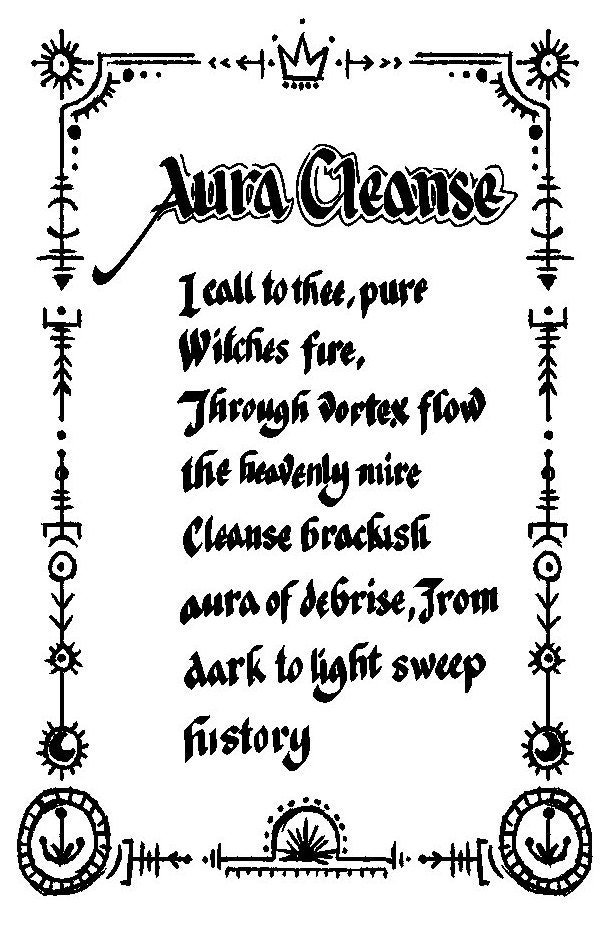 Aura Cleanse
I call to thee, pure
Witches fire,
Through vortex flow
the heavenly mire
Cleanse brackish
aura of debrise, From
dark to light sweep
history